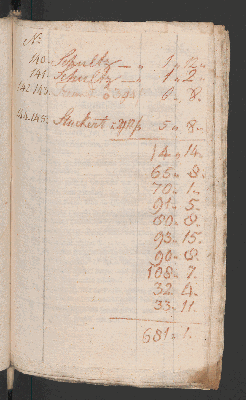 No.
140. Schultz — " 1 " 12 "
141. Schultz — " 1 " 2 "
142.143. 6 " 8.
144.145. Stuckert 5 " 8 "
14 " 14.
65 " 8.
70 " 1.
91 " 5.
80 " 8.
93 " 15.
90 " 8.
108 " 7.
32 " 4.
33 " 11.
681 " 1.